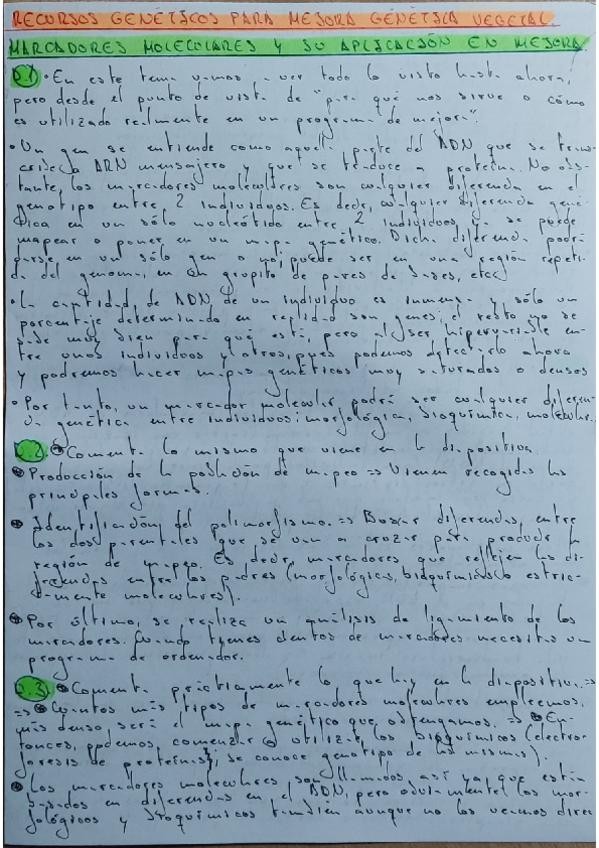 RECURSOS GENÉTICOS PARA MEJORA GENÉTICA VEGETAL
MARCADORES MOLECULARES Y SU APLICACIÓN EN MEJORA
D.1 • En este tema vamos a ver todo lo visto hasta ahora,
pero desde el punto de vista de "para qué nos sirve o cómo
es utilizado realmente en un programa de mejora".
• Un gen se entiende como aquella parte del ADN que se trans-
cribe a ARN mensajero y que se traduce a proteína. No obs-
tante, los marcadores moleculares son cualquier diferencia en el
genotipo entre 2 individuos. Es decir, cualquier diferencia gené-
tica en un sólo nucleótido entre 2 individuos, ya se puede
mapear o poner en un mapa genético. Dicha diferencia podrá
darse en un sólo gen o no; puede ser en una región repeti-
da del genoma, en un grupito de pares de bases, etc.
• La cantidad de ADN de un individuo es inmensa y sólo un
porcentaje determinado en realidad son genes; el resto no se
sabe muy bien para qué está, pero al ser hipervariable en-
tre unos individuos y otros, pues podemos detectarlo ahora
y podremos hacer mapas genéticos muy saturados o densos
• Por tanto, un marcador molecular podrá ser cualquier diferen-
cia genética entre individuos: morfológica, bioquímica, molecular.
D.2 • Comenta lo mismo que viene en la diapositiva.
• Producción de la población de mapeo => Vienen recogidas las
principales formas.
• Identificación del polimorfismo. => Buscar diferencias entre
los dos parentales que se van a cruzar para producir la
región de mapeo. Es decir, marcadores que reflejen las di-
ferencias entre los padres (morfológicas, bioquímicas o estric-
tamente moleculares).
• Por último, se realiza un análisis de ligamiento de los
marcadores. Cuando tienes cientos de marcadores necesitas un
programa de ordenador.
D.3 • Comenta prácticamente lo que hay en la diapositiva. =>
=> • Cuantos más tipos de marcadores moleculares empleemos,
más denso será el mapa genético que obtengamos. => • En-
tonces, podemos comenzar a utilizar los bioquímicos (electro-
foresis de proteínas; se conoce genotipo de las mismas).
• Los marcadores moleculares son llamados así ya que están
basados en diferencias en el ADN, pero obviamente los mor-
fológicos y bioquímicos también aunque no los veamos direc